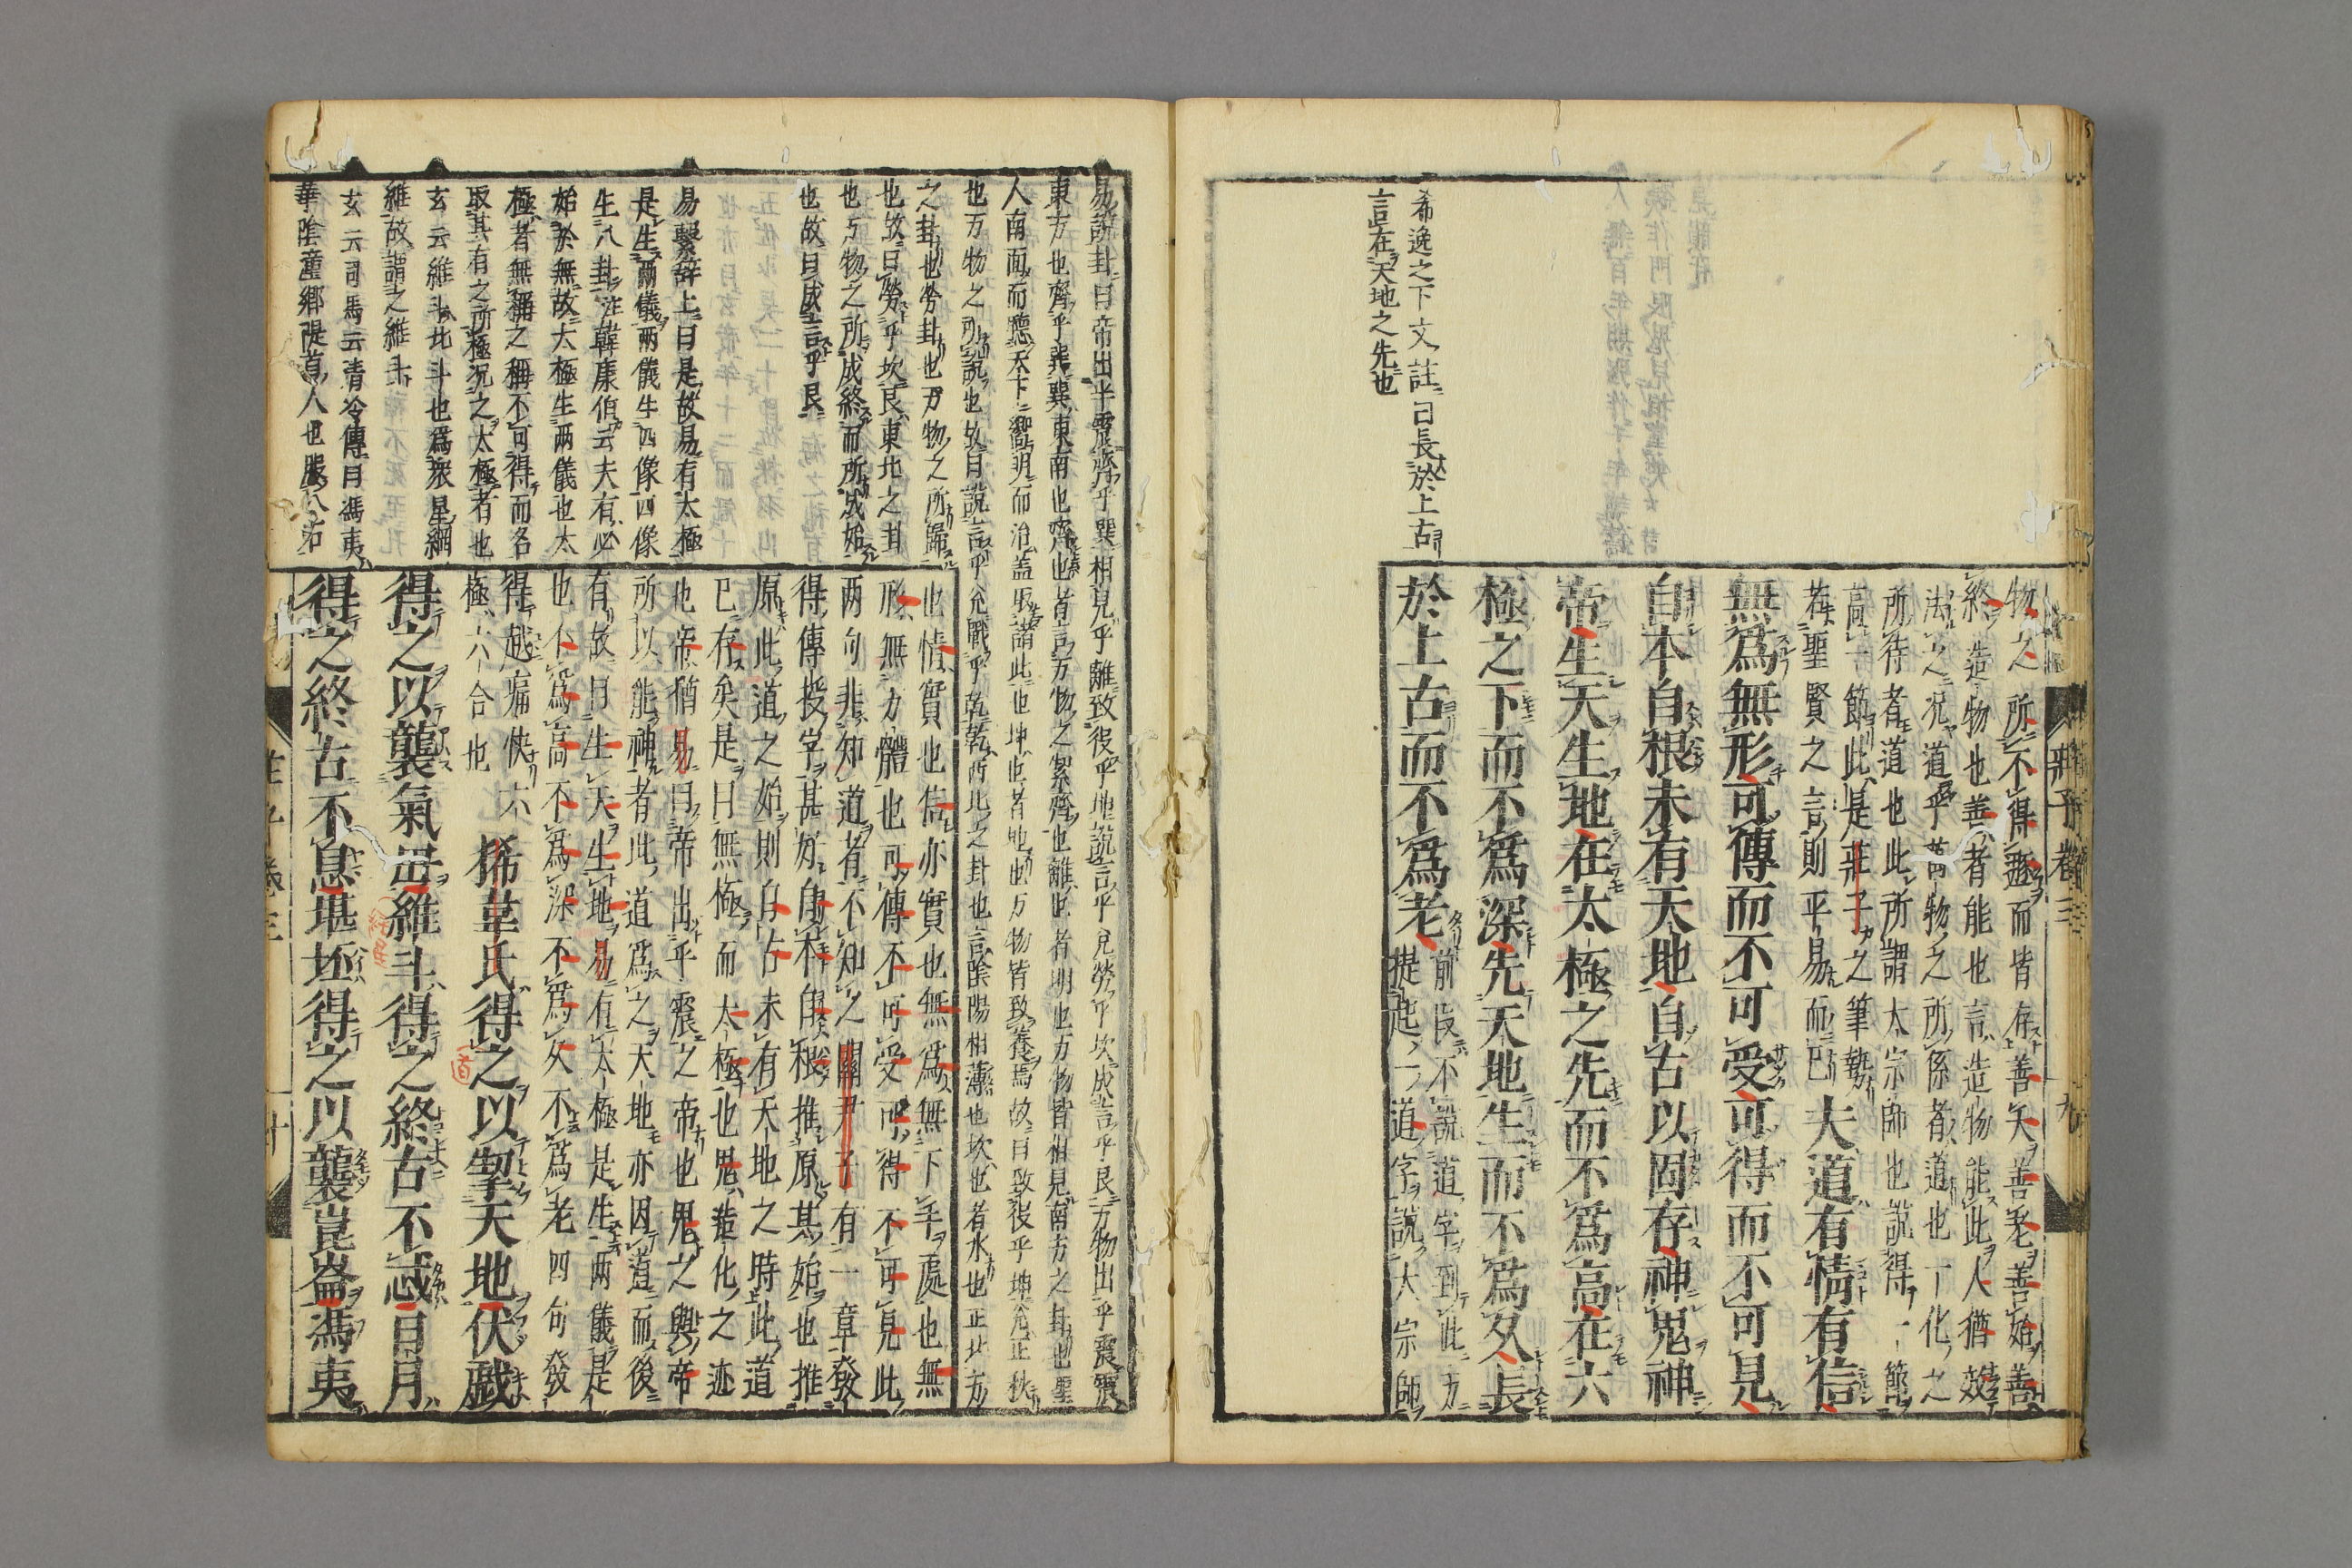 莊子卷三
九
希逸之下文註曰長於上古
言在天地之先也
物之所不得遯而皆存善夭善老善始善
終造物也善者能也言造物能此人猶效
法之况道乎萬物之所係者道也一化之
所待者道也此所謂大宗師也說得一節
高一節此是莊子之筆勢
若聖賢之言則平易而已夫道有情有信
無爲無形可傳而不可受可得而不可見
自本自根未有天地自古以固存神鬼神
帝生天生地在太極之先而不爲高在六
極之下而不爲深先天地生而不爲久長
於上古而不爲老前段不說道字到此方
提起一道字說大宗師
易說卦曰帝出乎震齊乎巽相見乎離致役乎地說言乎兌勞乎坎成言乎艮萬物出乎震震
東方也齊乎巽巽東南也齊也者言万物之絜齊也離也者明也万物皆相見南方之卦也聖
人南面而聽天下嚮明而治蓋取諸此也坤也者地也万物皆致養焉故曰致役乎坤兌正秋
也万物之所說也故曰說言乎兌戰乎乾乾西北之卦也言陰陽相薄也坎也者水也正北方
之卦也勞卦也万物之所歸
也故曰勞乎坎艮東北之卦
也万物之所成終而所成始
也故曰成言乎艮
易繫辭上曰是故易有太極
是生兩儀兩儀生四像四像
生八卦注韓康伯云夫有必
始於無故太極生兩儀也太
極者無稱之稱不可得而名
取其有之所極况之太極者也
玄云維斗北斗也爲衆星綱
維故謂之維斗
玄云司馬云清冷傳曰馮夷
華陰潼鄉隄首人也服八石
也情實也信亦實也無爲無下手處也無
形無方體也可傳不可受可得不可見此
兩句非知道者不知之關尹子有一章發
得傳授字甚好自本自根推原其始也推
原此道之始則自古未有天地之時此道
已存矣是曰無極而太極也鬼造化之迹
也帝猶易曰帝出乎震之帝也鬼之與帝
所以能神者此道爲之天地亦因道而後
有故曰生天生地易有太極是生兩儀是
也不爲高不爲深不爲久不爲老四句發
得越痛快六
極六合也
狶韋氏得之以挈天地伏戲
得之以襲氣母維斗得之終古不忒日月
得之終古不息堪坏得之以襲崑崙馮夷
莊子卷三
十